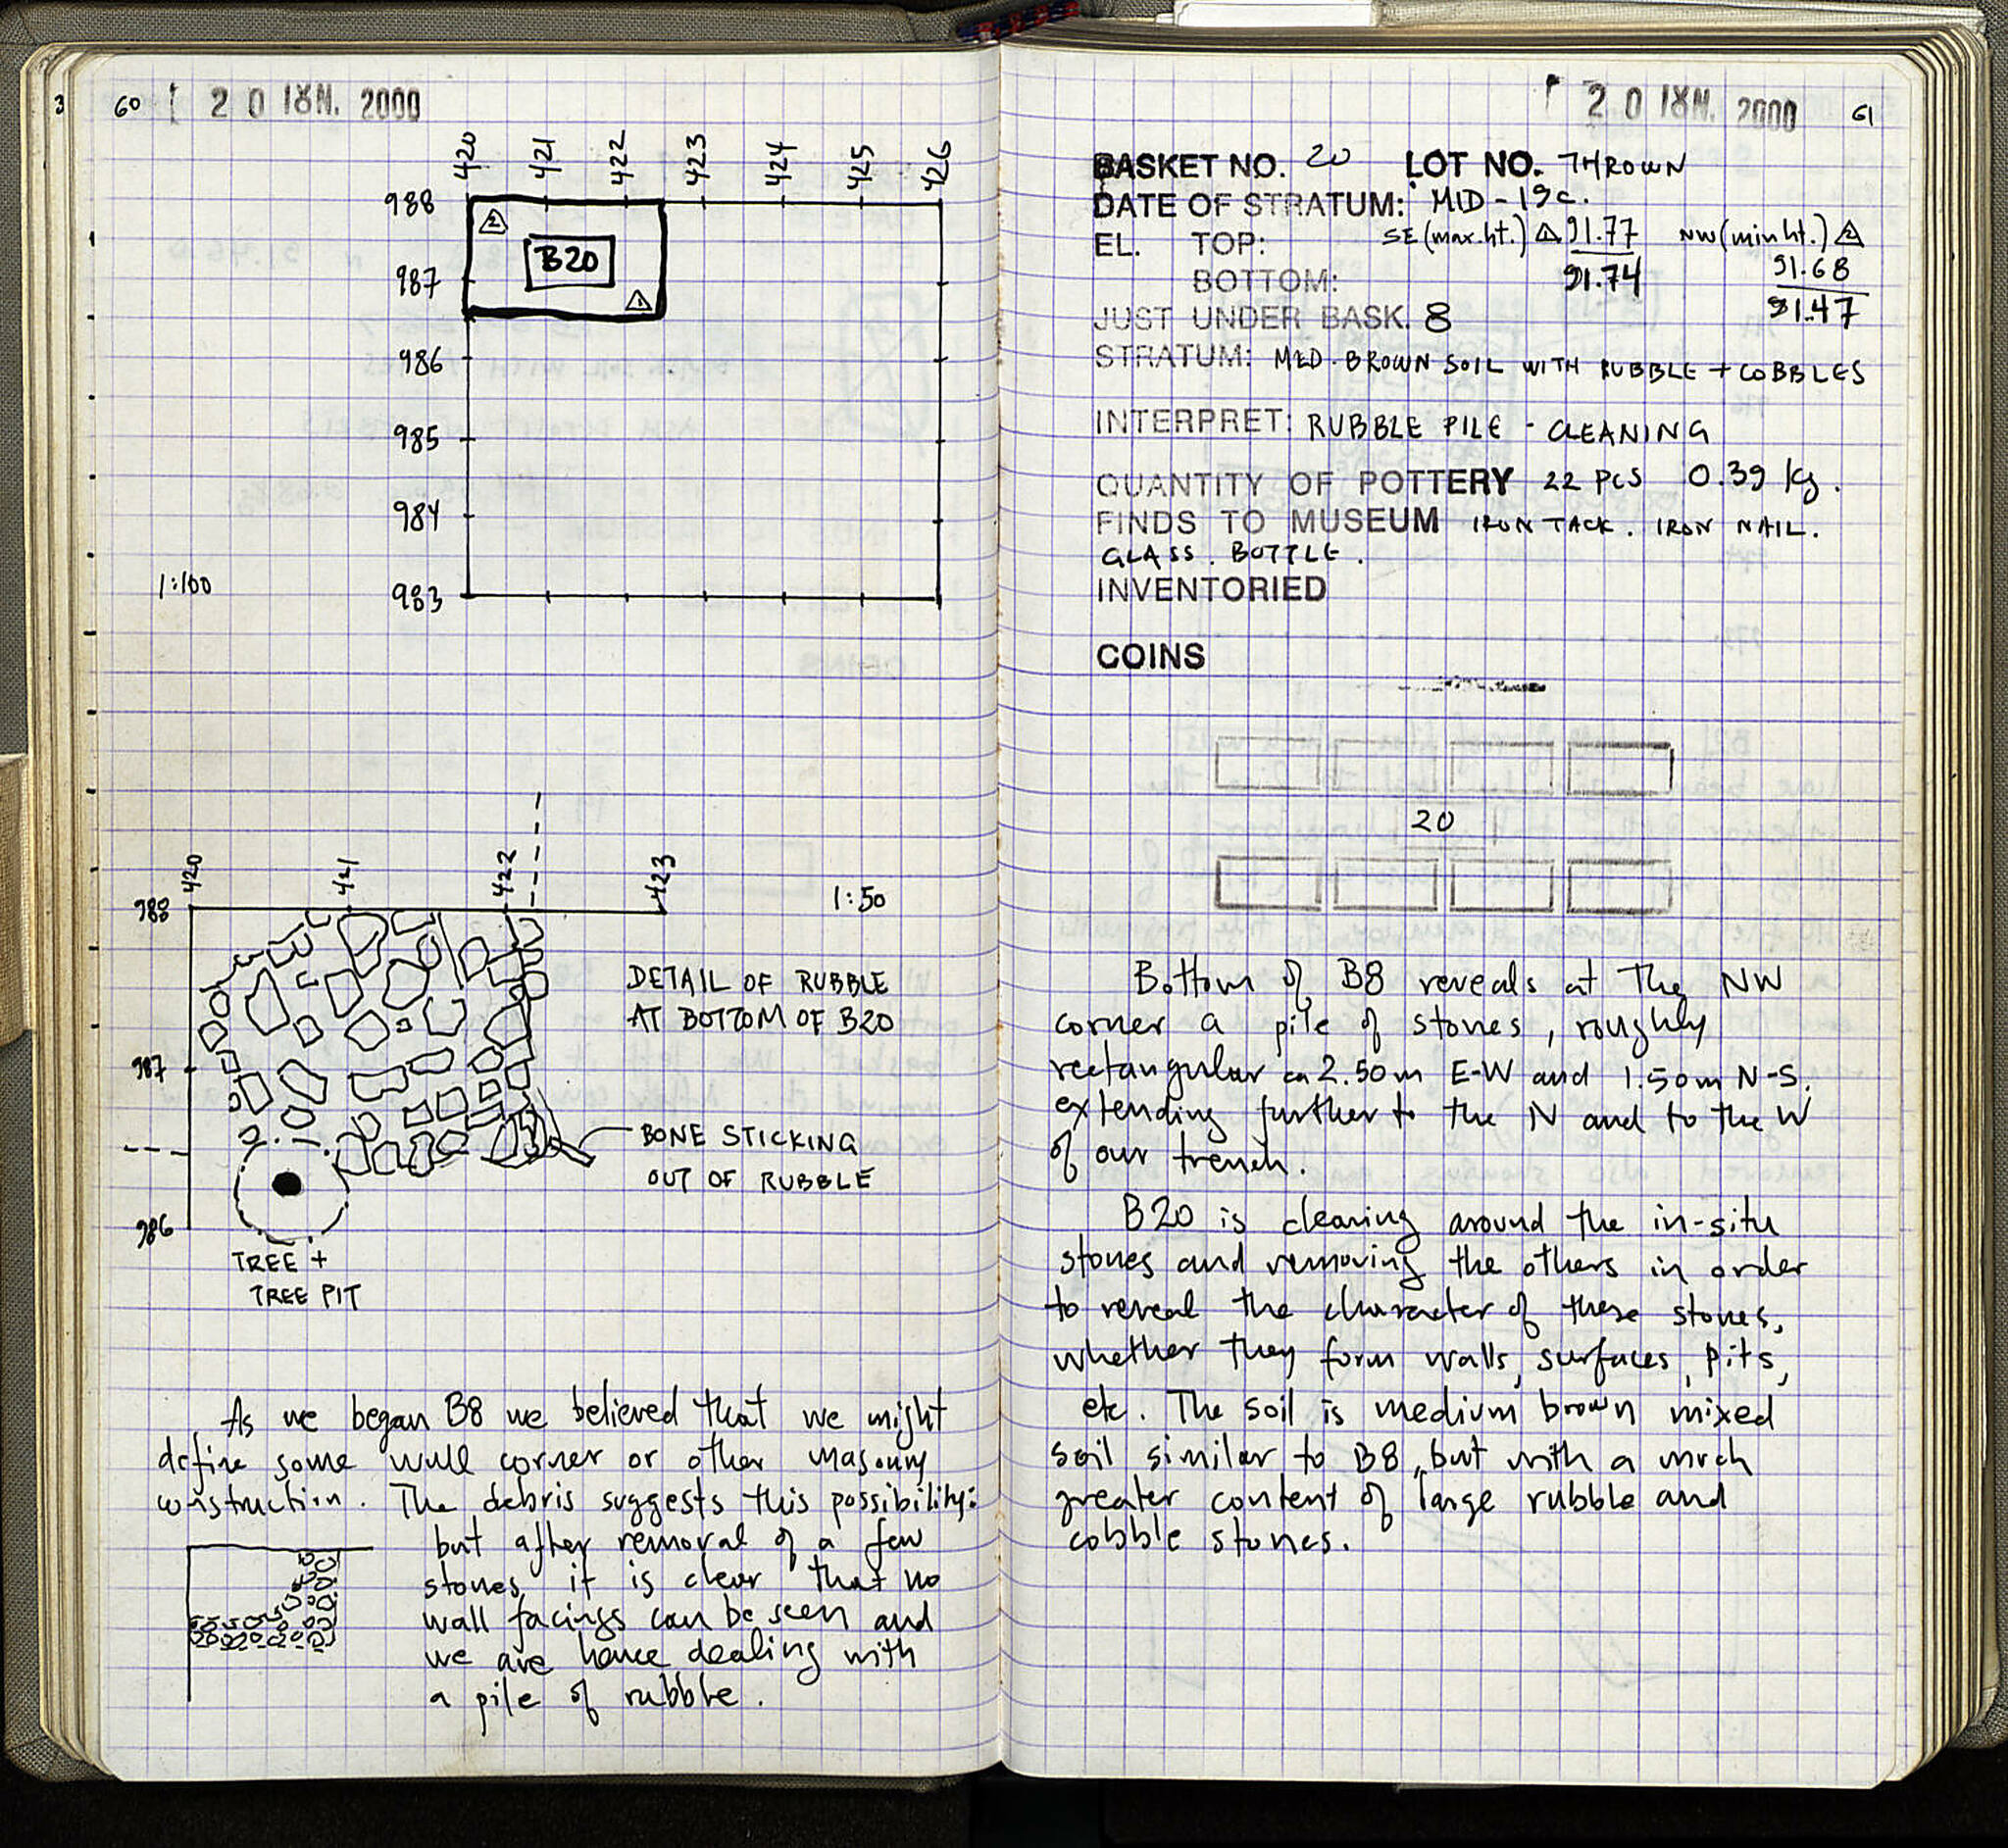 3
60
2 0 ΙΟΥΝ. 2000
420 421 422 423 424 425 426
988
2
B20
987
1
986
985
984
1:100
983
420 421 422 423
988
1:50
DETAIL OF RUBBLE
AT BOTTOM OF B20
987
BONE STICKING
OUT OF RUBBLE
986
TREE +
TREE PIT
As we began B8 we believed that we might
define some wall corner or other masonry
construction. The debris suggests this possibility:
but after removal of a few
stones it is clear that no
wall facings can be seen and
we are hence dealing with
a pile of rubble.
2 0 ΙΟΥΝ. 2000
61
BASKET NO. 20 LOT NO. THROWN
DATE OF STRATUM: MID-19c.
EL. TOP: SE (max. ht.) 1 91.77 NW (min ht.) 2 91.68
BOTTOM: 91.74 91.47
JUST UNDER BASK. 8
STRATUM: MED. BROWN SOIL WITH RUBBLE + COBBLES
INTERPRET: RUBBLE PILE - CLEANING
QUANTITY OF POTTERY 22 PCS 0.39 kg.
FINDS TO MUSEUM IRON TACK. IRON NAIL.
GLASS. BOTTLE.
INVENTORIED
COINS
20
Bottom of B8 reveals at the NW
corner a pile of stones, roughly
rectangular ca 2.50m E-W and 1.50m N-S.
extending further to the N and to the W
of our trench.
B20 is cleaning around the in-situ
stones and removing the others in order
to reveal the character of these stones,
whether they form walls, surfaces, pits,
etc. The soil is medium brown mixed
soil similar to B8, but with a much
greater content of large rubble and
cobble stones.